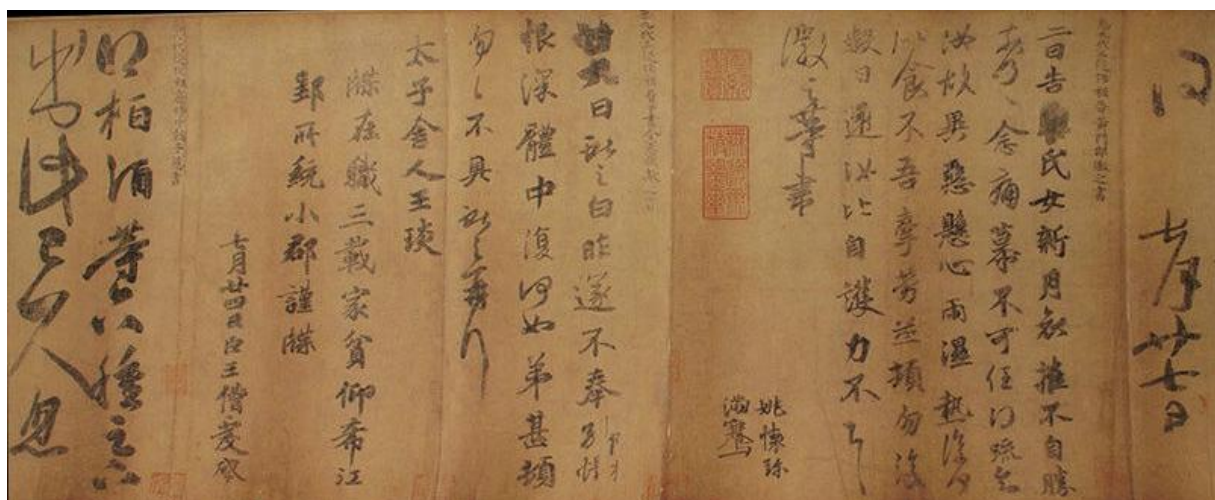 七月廿七日
臣九代三從伯祖晉黃門郎徽之書
二日告氏女新月哀摧不自勝
奈何奈何念痛慕不可任得疏知
汝故異惡懸心雨濕熱復何
似食不吾牽勞並頓勿復
數日還汝比自護力不具
徽之等書
姚懷珍
滿騫
廿九日獻之白昨遂不奉別悵
恨深體中復何如弟甚頓
匆匆不具獻之再拜
太子舍人王琰
牒在職三載家貧仰希江
郢所統小郡謹牒
七月廿四日臣王僧虔啟
得柏酒等六種足下
出此已久忽